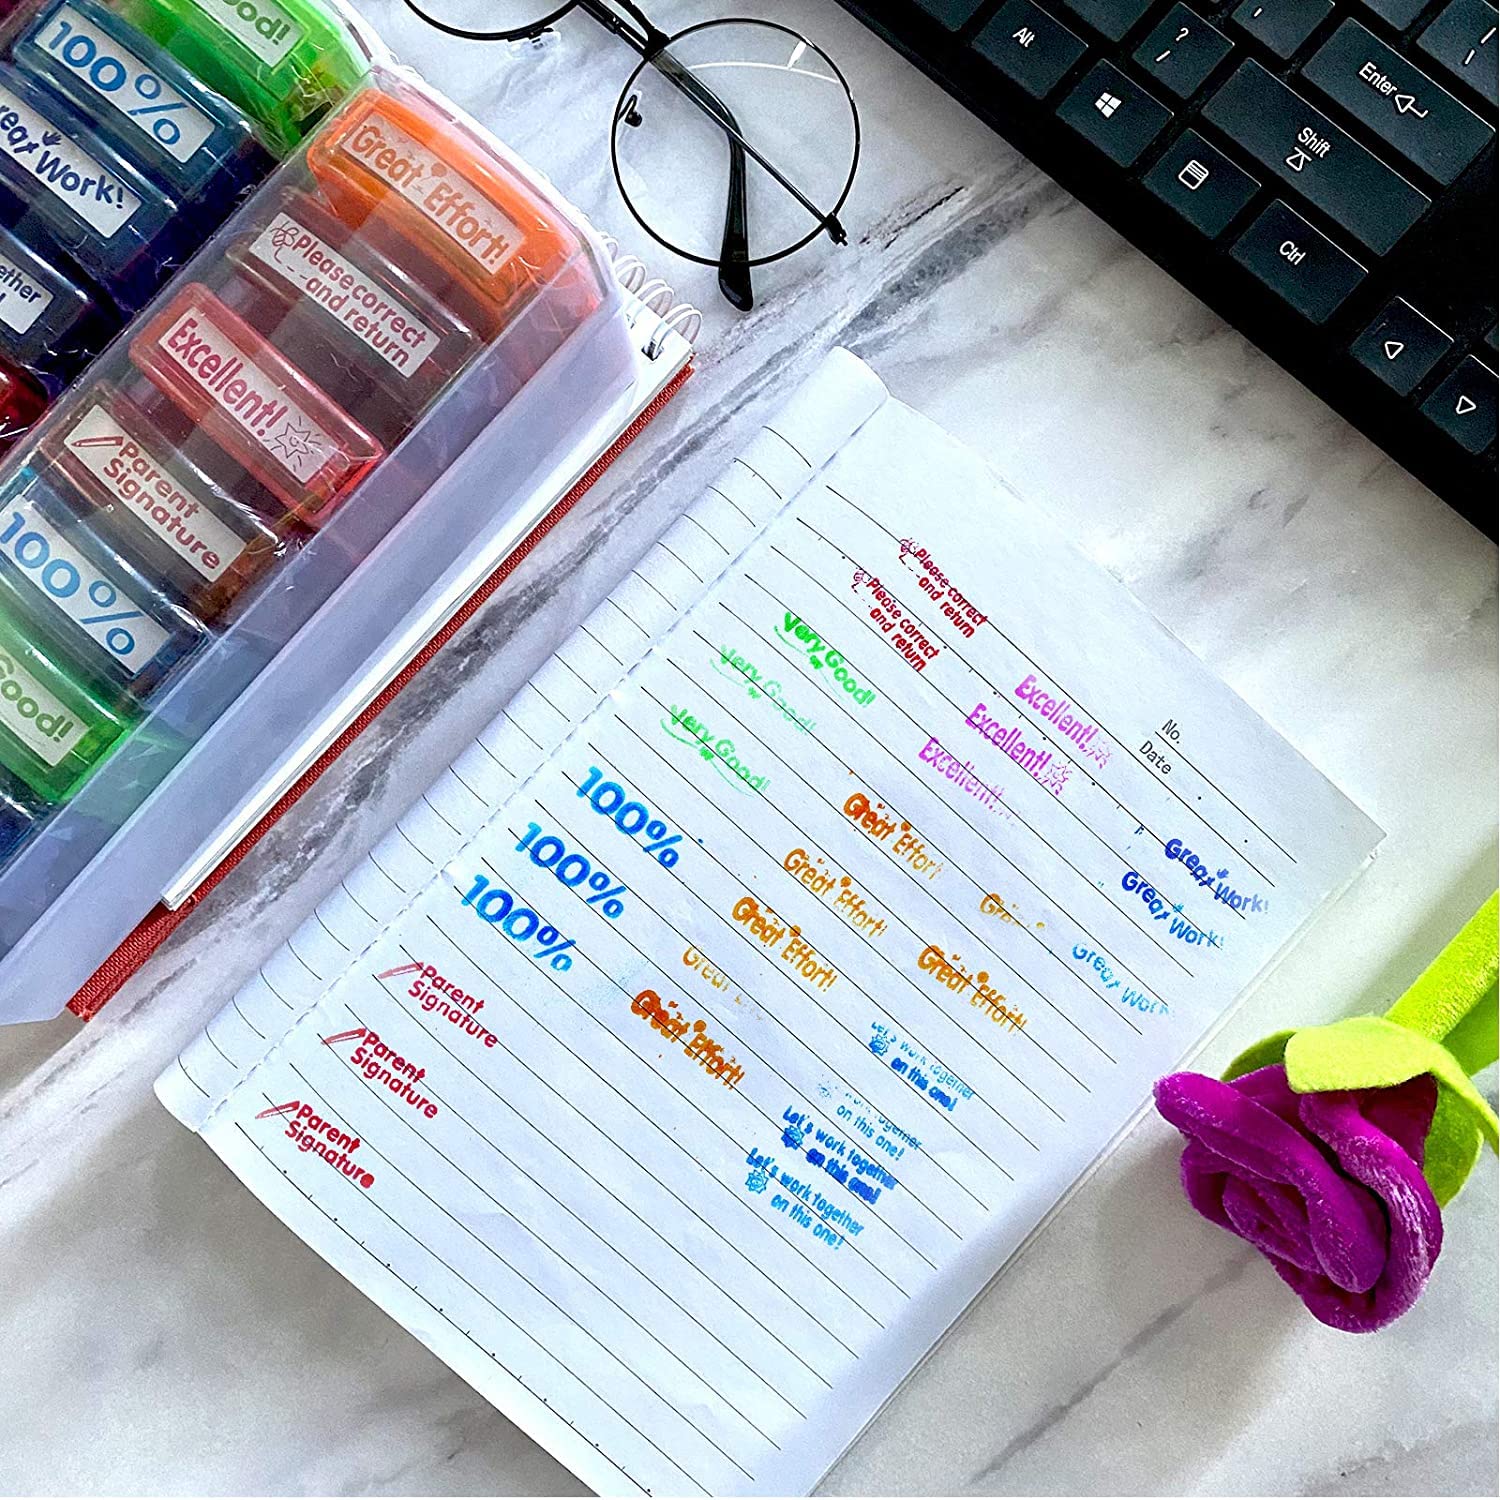 Good!
100%
Great Work!
Great Effort!
Please correct
and return
Excellent!
Parent
Signature
100%
Good!
Alt
?
/
Enter
Shift
Ctrl
No.
Date
Please correct
and return
Please correct
and return
Excellent!
Excellent!
Excellent!
Very Good!
Very Good!
Very Good!
Great Work!
Great Work!
Great Work
100%
100%
100%
Great Effort!
Great Effort!
Great Effort!
Great
Great Effort!
Great Effort!
Parent
Signature
Parent
Signature
Parent
Signature
Let's work together
on this one!
work together
on this one!
Let's work together
on this one!
Let's work together
on this one!